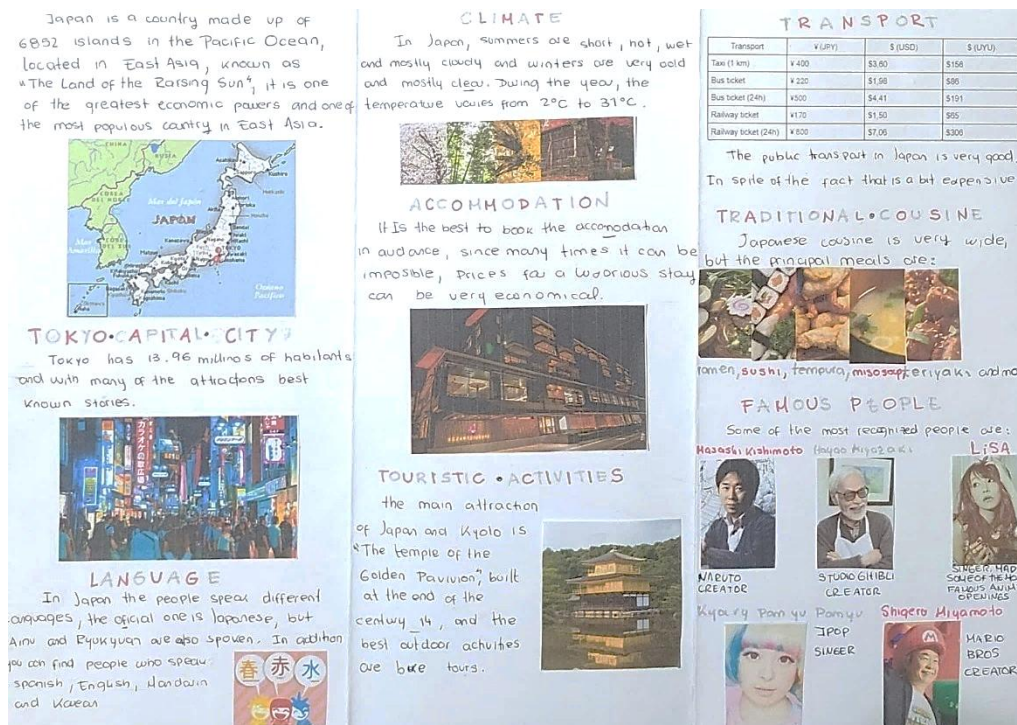 Japan is a country made up of
6852 islands in the Pacific Ocean,
located in East Asia, known as
"The Land of the Rarsing Sun", it is one
of the greatest economic powers and one of
the most populous cantry in East Asia.
CHINA
RUSIA
COREA
DEL NORTE
Mar del Japón
JAPÓN
Mar
Amarillo
COREA
DEL
Sapporo
Kushiro
Hokkaido
TOKYO
Océano
Pacífico
TOKYO•CAPITAL•CITY
Tokyo has 13.96 millinos of habitants
and with many of the attractions best
known stories.
カラオケの歌広場
LANGUAGE
In Japan the people speak different
languages, the oficial one is Japanese, but
Ainu and Ryukyuan are also spoken. In addition
you can find people who speak
spanish, English, Mandarin
and Korean
春 赤 水
CLIMATE
In Japan, summers are short, hot, wet
and mostly cloudy and winters are very cold
and mostly clear. During the year, the
temperature varies from 2°C to 31°C.
ACCOMMODATION
It Is the best to book the accomodation
in audance, since many times it can be
imposible, Prices for a luxorious stay
can be very economical.
TOURISTIC•ACTIVITIES
the main attraction
of Japan and Kyoto is
"The temple of the
Golden Pavivion", built
at the end of the
century_14, and the
best outdoor activities
are bike tours.
TRANSPORT
Transport ¥ (JPY) $ (USD) $ (UYU)
Taxi (1 km) ¥ 400 $3,60 $156
Bus ticket ¥ 220 $1,98 $86
Bus ticket (24h) ¥500 $4,41 $191
Railway ticket ¥170 $1,50 $65
Railway ticket (24h) ¥ 800 $7,06 $306
The public transport in Japan is very good.
In spite of the fact that is a bit expensive
TRADITIONAL•COUSINE
Japanese cousine is very wide,
but the principal meals are:
ramen, sushi, tempura, misosoap, teriyaki and mo
FAMOUS PEOPLE
Some of the most recognized people are:
Masashi Kishimoto
Hayao Miyazaki
LiSA
NARUTO
CREATOR
STUDIO GHIBLI
CREATOR
SINGER, MAD
SOME OF THE MO
FAMOUS ANIM
OPENINGS
Kyary Pam yu Pamyu
JPOP
SINGER
Shigero Miyamoto
MARIO
BROS
CREATOR